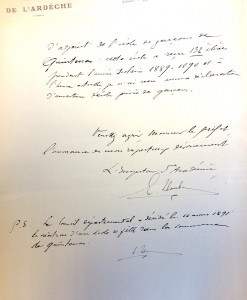 DE L'ARDÈCHE
d'adjoint de l'école de garçons de
Quintenas : cette école a reçu 132 élèves
pendant l'année scolaire 1889-1890 et à
l'heure actuelle je n'ai reçu aucune déclaration
d'ouverture d'école privée de garçons.
Veuillez agréer, Monsieur le Préfet,
l'assurance de mon respectueux dévouement
L'Inspecteur d'Académie
P.S. Le Conseil départemental a décidé le 10 mars 1891
la création d'une école de filles dans la commune
de Quintenas.